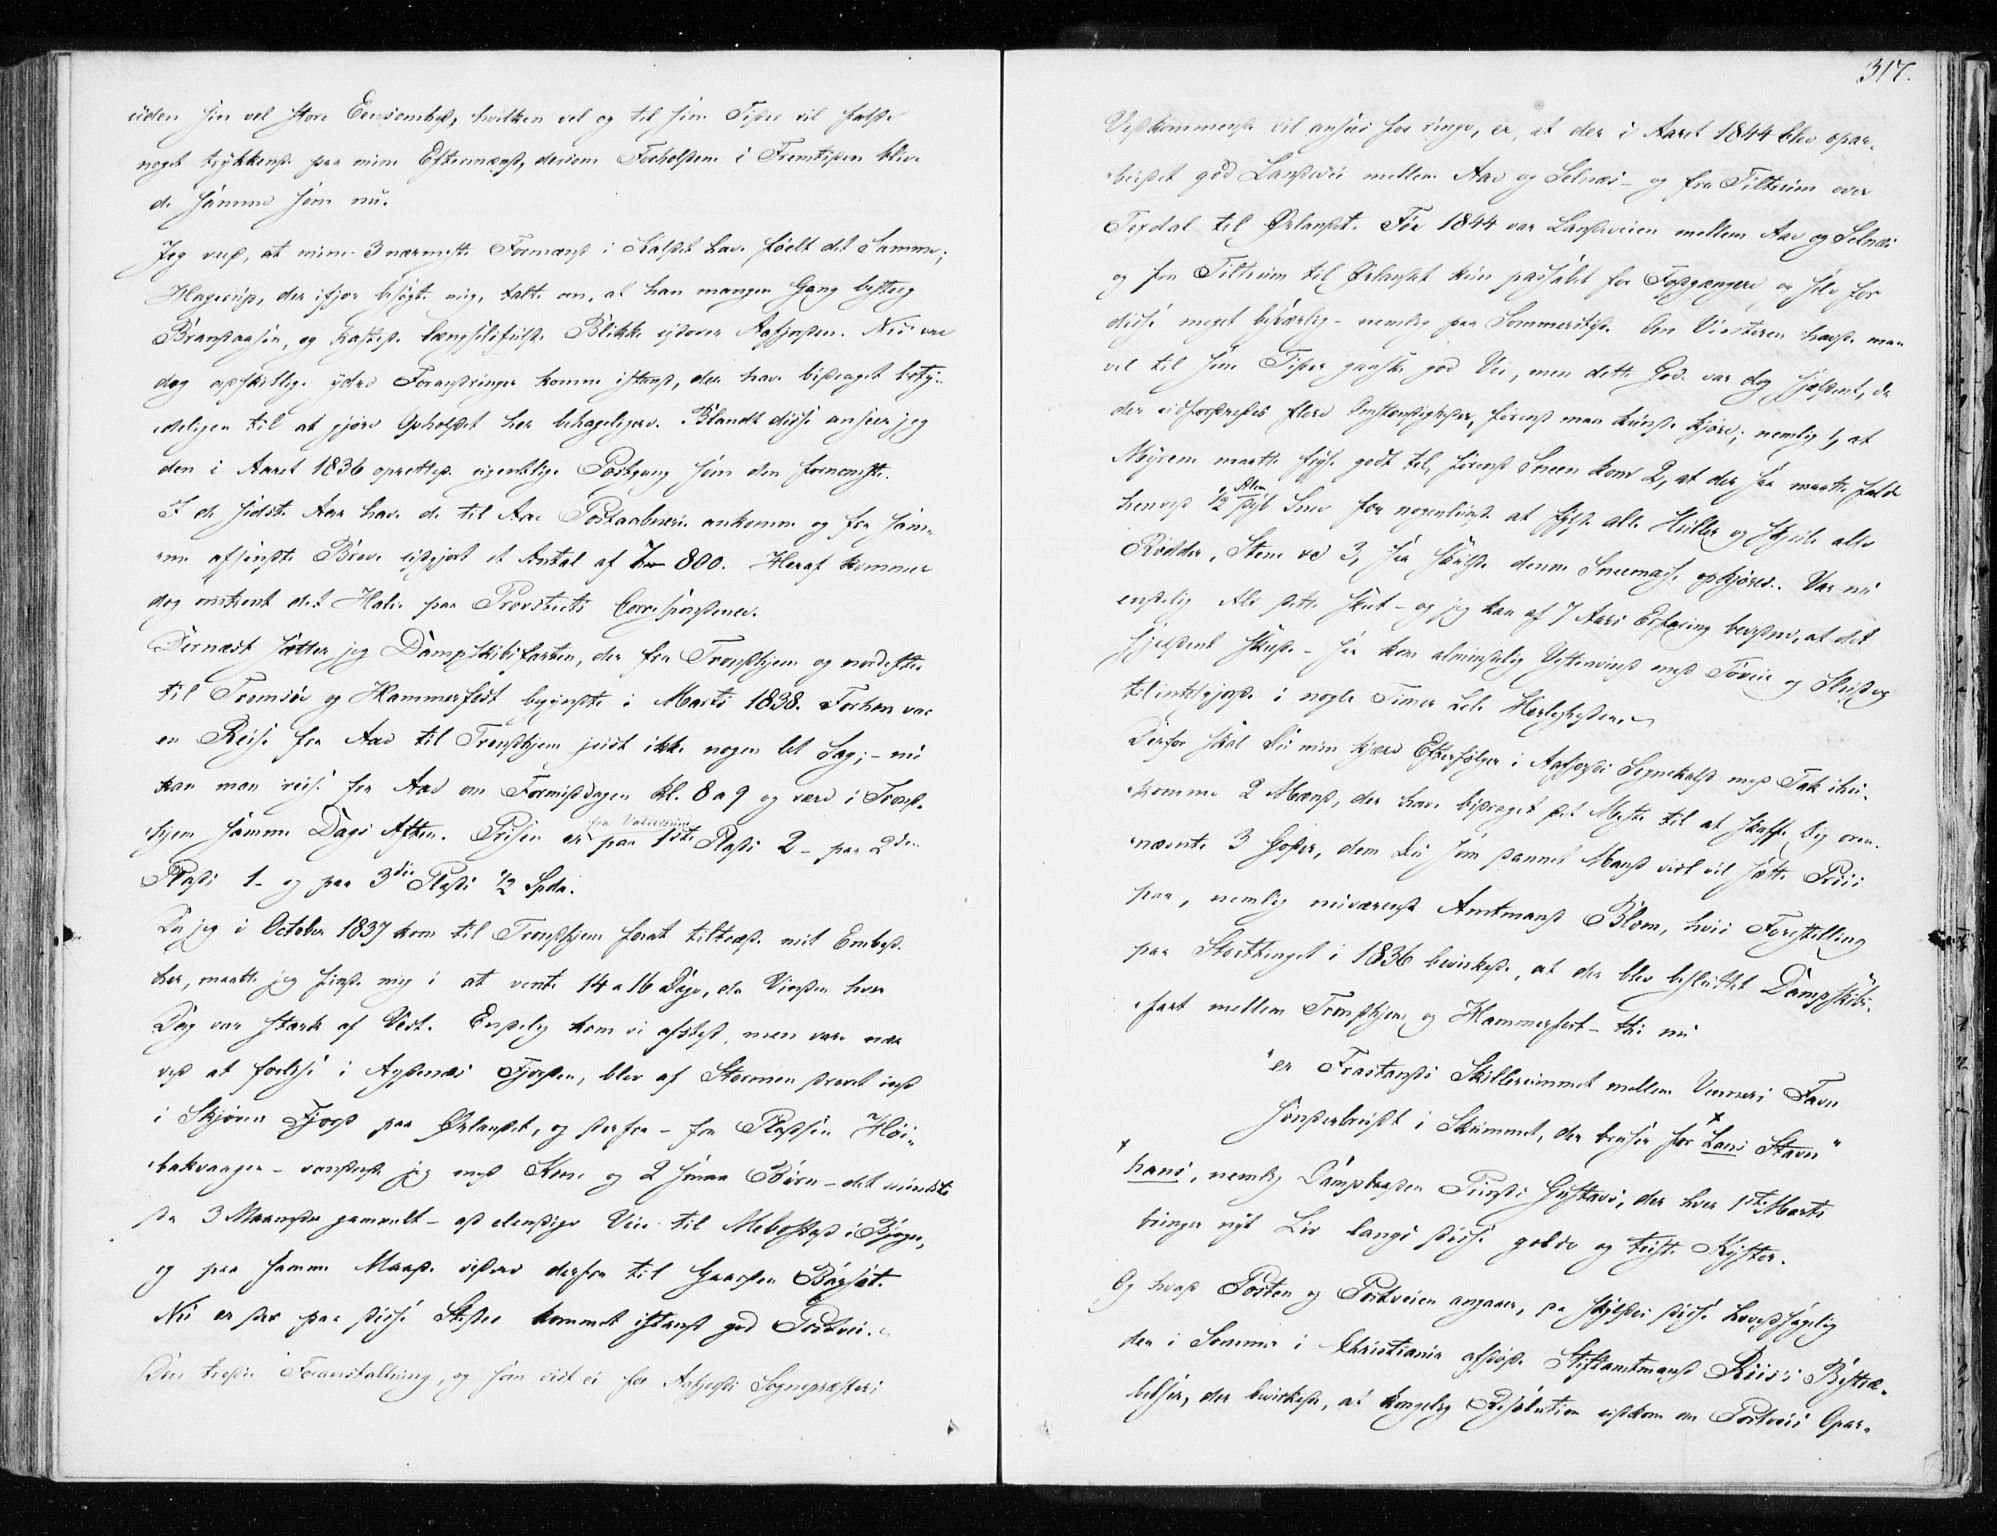 uden sin vel store Eensomhed, hvilken vel og til sine Tider vil falde
noget trykkende paa mine Eftermænd, dersom Forholdene i Fremtiden blive
de samme som nu.
Jeg veed, at mine 3 nærmeste Formænd i Kaldet have følt det Samme;
Hagerup, der ifjor besøgte mig, talte om, at han mangen Gang besteeg
Brandaasen, og kastede længselsfulde Blikke udover Aafjorden. Nu ere
dog adskillige ydre Forandringer komne istand, der have bidraget bety-
deligen til at gjøre Opholdet her behageligere. Blandt disse anseer jeg
den i Aaret 1836 oprettede egentlige Postgang som den fornemste.
I de sidste Aar have de til Aae Postaabneri ankomne og fra sam-
me afsendte Breve udgjort et Antal af 800. Heraf kommer
dog omtrent det Halve paa Provstiets Correspondence.
Dernæst sætter jeg Dampskibsfarten, der fra Trondhjem og nordefter
til Tromsøe og Hammerfest begyndte i Marts 1838. Forhen var
en Reise fra Aae til Trondhjem just ikke nogen let Sag; - nu
kan man reise fra Aae om Formiddagen Kl. 8 a 9 og være i Trond-
hjem samme Dags Aften. Prisen er fra Valdersund paa 1ste Plads 2 - paa 2den
Plads 1 - og paa 3die Plads 1/2 Spdr.
Da jeg i October 1837 kom til Trondhjem forat tiltræde mit Embede
her, maatte jeg finde mig i at vente 14 a 16 Dage, da Vinden hver
Dag var stærk af Vest. Endelig kom vi afsted, men vare nær
ved at forlise i Agdenæs Fjorden, blev af Stormen drevet ind
i Skjørn Fjord paa Ørlandet, og derfra - fra Pladsen Høi-
bakvaagen - vandrede jeg med Kone og 2 smaa Børn - det mindste
da 3 Maaneder gammelt - ad elendige Veie til Mebostad i Bjugn,
og paa samme Maade videre derfra til Gaarden Bagsæt.
Nu er der paa disse Steder kommet istand god Postvei.
Den tredie Foranstaltning, og som vist ei for Aafjords Sognepræsters
317.
Vedkommende vil ansees for ringe, er, at der i Aaret 1844 blev opar-
beidet god Landevei mellem Aae og Selnæs - og fra Tiltrum over
Texdal til Ørlandet. Før 1844 var Landeveien mellem Aae og Selnæs
og fra Tiltrum til Ørlandet kun passabel for Fodgængere og selv for
disse meget besværlig - nemlig paa Sommerstid. Om Vinteren havde man
vel til sine Tider ganske god Vei, men dette Gode var dog sjældent, da
der udfordredes flere Omstændigheder, førend man kunde kjøre; nemlig 1, at
Myrene maatte fryse godt til, førend Sneen kom 2, at der saa maatte falde
henved 1/2 Alen dyb Snee for nogenlunde at fylde alle Huller og skjule alle
Rødder, Stene &c 3, saa skulde denne Sneemasse opkjøres. Var nu
endelig Alt dette skeet - og jeg kan af 7 Aars Erfaring bevidne, at det
sjeldent skede - saa kom almindelig Vestenvind med Tøveir og Slud og
tilintetgjorde i nogle Timer hele Herligheden.
Derfor skal Du min kjære Efterfølger i Aafjords Sognekald med Tak ihu-
komme 2 Mænd, der have bidraget det Meste til at skaffe Dig oven-
nævnte 3 Goder, dem Du som dannet Mand vist vil sætte Priis
paa, nemlig nuværende Amtmand Blom, hvis Forestilling
paa Storthinget i 1836 bevirkede, at der blev besluttet Dampskibs-
fart mellem Trondhjem og Hammerfest - thi nu
"er Frastands Skillerummet mellem Venners Favn
sønderbrudt i Skummet, der bruser for × hans Stavn"
× hans, nemlig Dampbaaden Prinds Gustavs, der hver 1ste Marts
bringer nyt Liv langs disse golde og triste Kyster.
Og hvad Posten og Postveien angaaer, da skyldes disse hovedsagelig
den i Sommer i Christiania afdøde Stiftamtmand Riis's Bestræ-
belser, der bevirkede, at kongelig Resolution udkom om Postveis Opar-